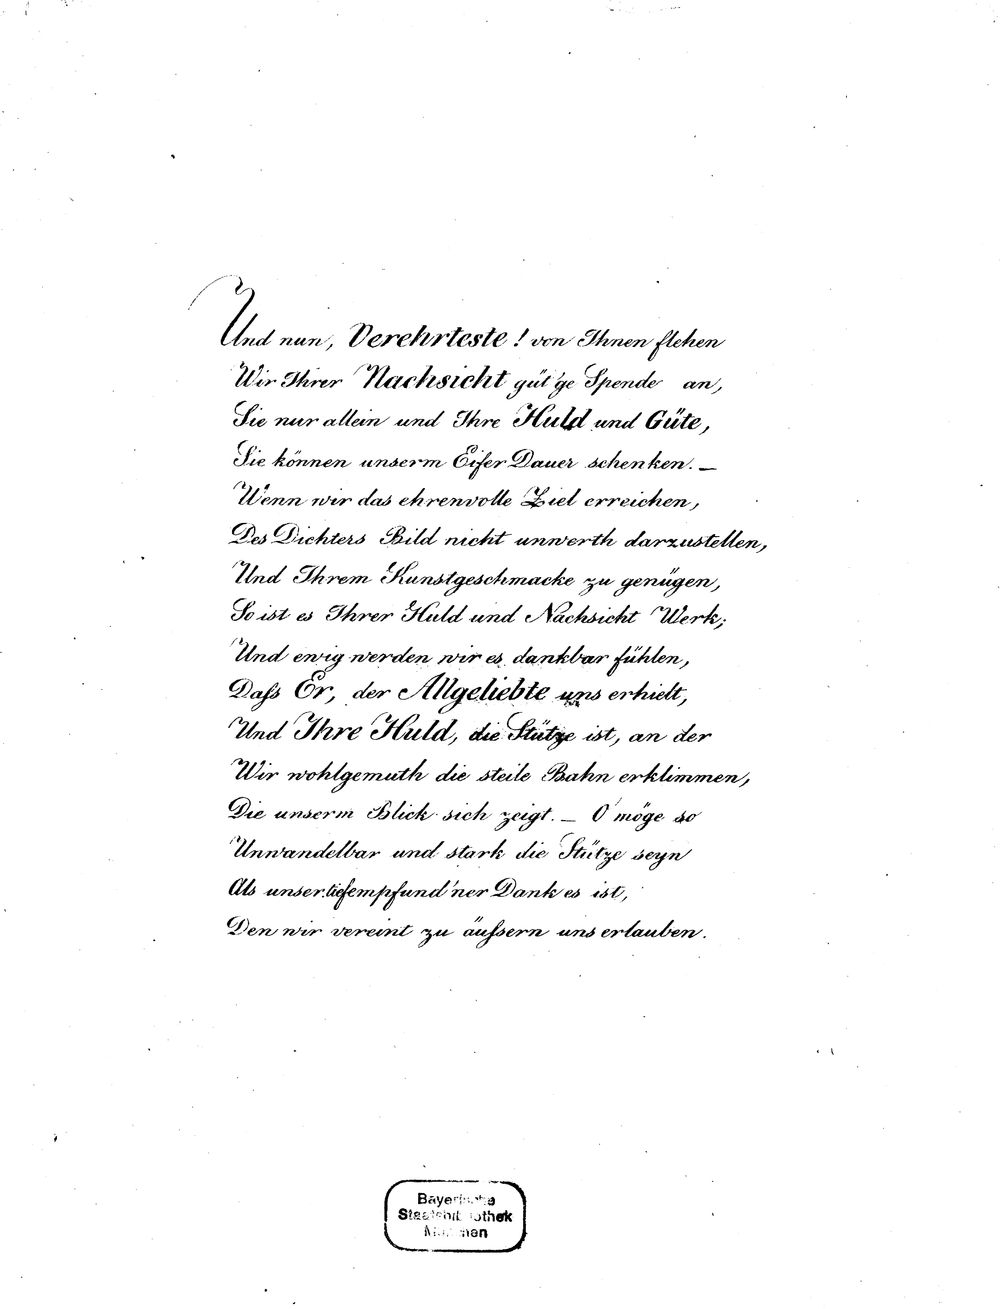 Und nun, Verehrteste! von Ihnen flehen
Wir Ihrer Nachsicht güt'ge Spende an,
Sie nur allein und Ihre Huld und Güte,
Sie können unserm Eifer Dauer schenken. —
Wenn wir das ehrenvolle Ziel erreichen,
Des Dichters Bild nicht unwerth darzustellen,
Und Ihrem Kunstgeschmacke zu genügen,
So ist es Ihrer Huld und Nachsicht Werk;
Und ewig werden wir es dankbar fühlen,
Daſs Er, der Allgeliebte uns erhielt,
Und Ihre Huld, die Stütze ist, an der
Wir wohlgemuth die steile Bahn erklimmen,
Die unserm Blick sich zeigt. — O möge so
Unwandelbar und stark die Stütze seyn
Als unser tiefempfund'ner Dank es ist,
Den wir vereint zu äuſsern uns erlauben.
Bayerische
Staatsbibliothek
München